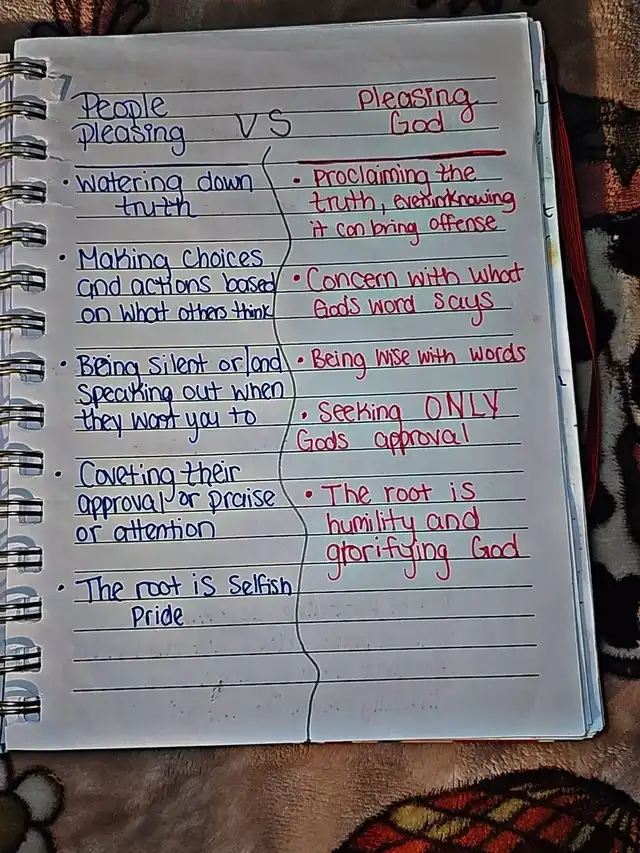 People
Pleasing
VS
Pleasing
God
• Watering down
truth
• Making choices
and actions based
on what others think
• Being silent or/and
speaking out when
they want you to
• Coveting their
approval or praise
or attention
• The root is selfish
Pride
• Proclaiming the
truth, even in knowing
it can bring offense
• Concern with what
Gods word says
• Being wise with words
• Seeking ONLY
Gods approval
• The root is
humility and
glorifying God